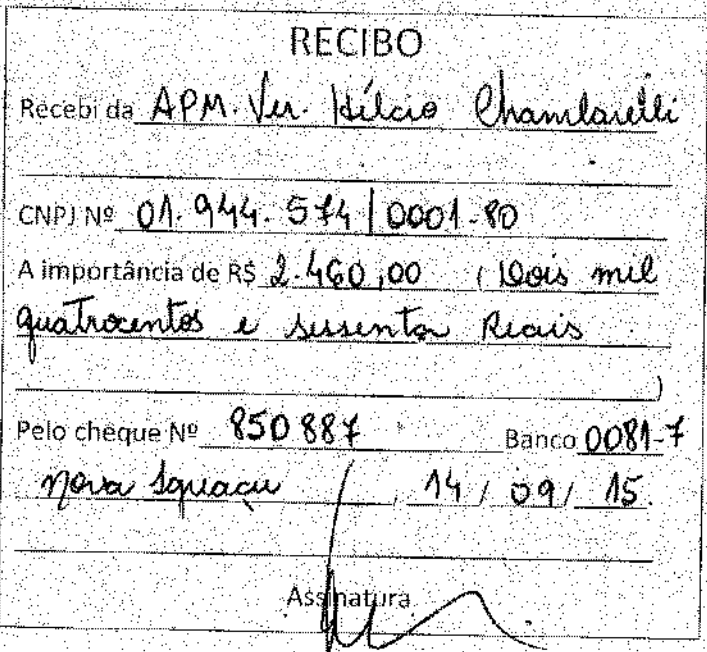 RECIBO
Recebi da APM. Ver. Hélcio Chambarelli
CNPJ Nº 01.944.574/0001-80
A importância de R$ 2.460,00 (Dois mil
quatrocentos e sessenta Reais
)
Pelo cheque Nº 850887 Banco 0081-7
Nova Iguaçu, 14/09/15.
Assinatura